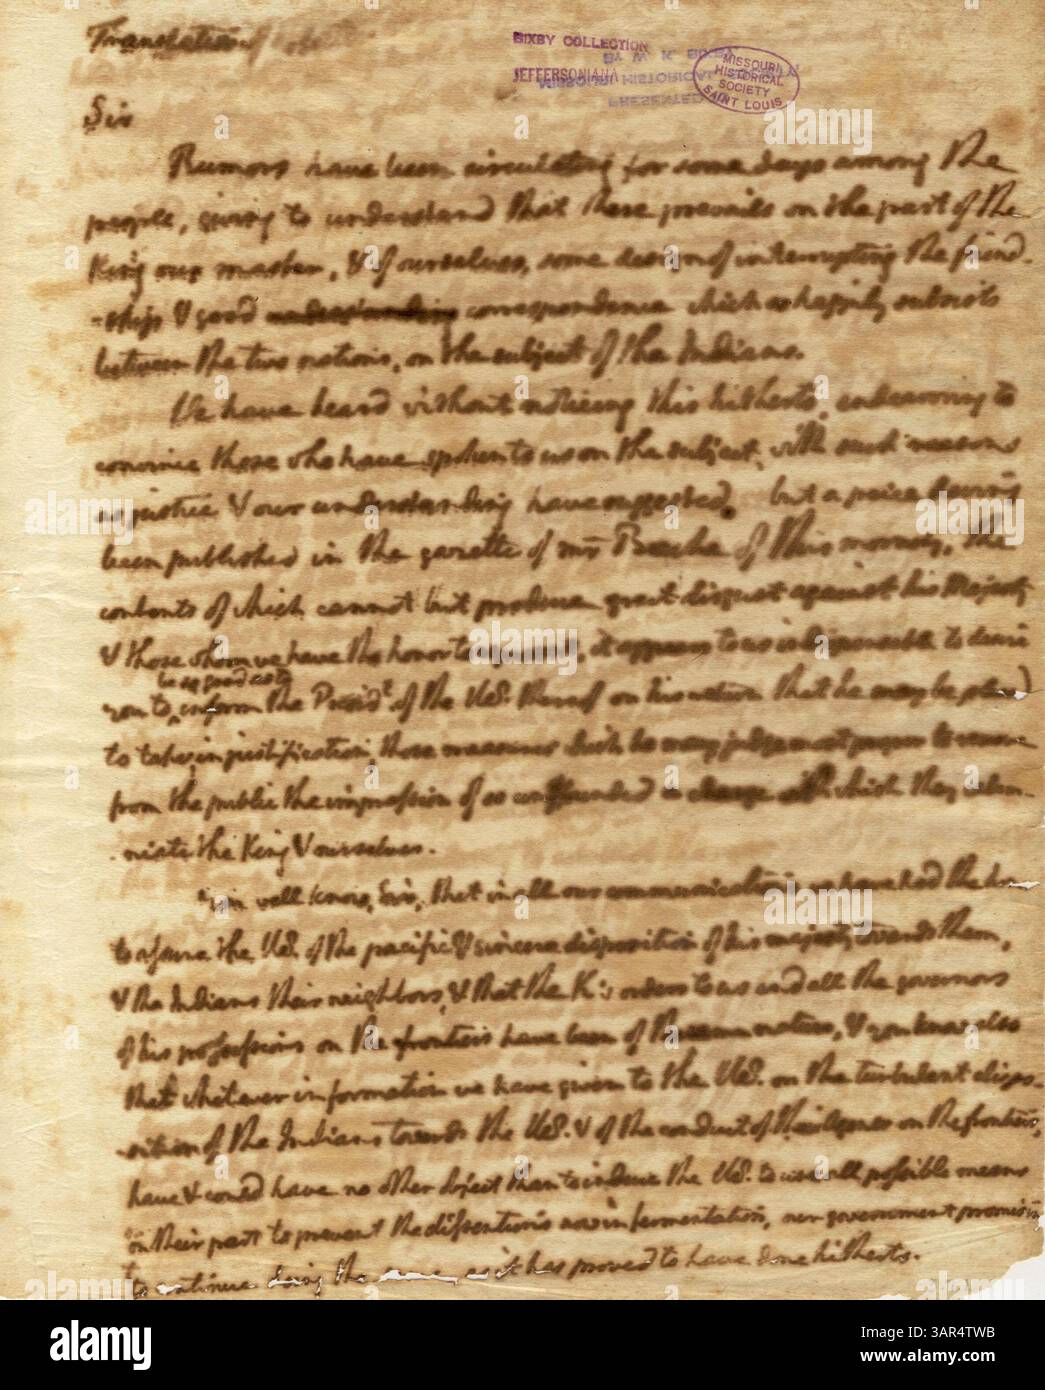 Translation
BIXBY COLLECTION
JEFFERSONIANA
MISSOURI HISTORICAL SOCIETY SAINT LOUIS
PRESENTED
Sir
Rumors have been circulating for some days among the
people, giving to understand that there prevails on the part of the
King our master, & of ourselves, some design of interrupting the friend-
-ship & good understanding correspondence which so happily subsists
between the two nations, on the subject of the Indians.
We have heard without noticing this hitherto, endeavoring to
convince those who have spoken to us on the subject, with such reasons
as justice & our understanding have suggested. but a peice having
been published in the gazette of mr Beache of this morning, the
contents of which cannot but produce great disgust against his Majesty
& those whom we have the honor to represent, it appears to us indispensable to desire
be so good as to
you to inform the Presidt. of the U.S. thereof on his return that he may be pleased
to take in justification, those measures which he may judge most proper to remove
from the public the impression of so unfounded a charge with which they calum-
-niate the King & ourselves.
You well know, Sir, that in all our communications we have had the hon
to assure the U.S. of the pacific & sincere disposition of his majesty towards them,
& the Indians their neighbors, & that the K's orders to us and all the governors
of his possessions on the frontiers have been of the same nature, & you know also
that whatever information we have given to the U.S. on the turbulent dispo-
-sition of the Indians towards the U.S. & of the conduct of their agents on the frontiers,
have & could have no other object than to induce the U.S. to use all possible means
on their part to prevent the dissentions now in fermentation, our government promising
to continue doing the same, as it has proved to have done hitherto.
alamy
Image ID: 3AR4TWB
www.alamy.com